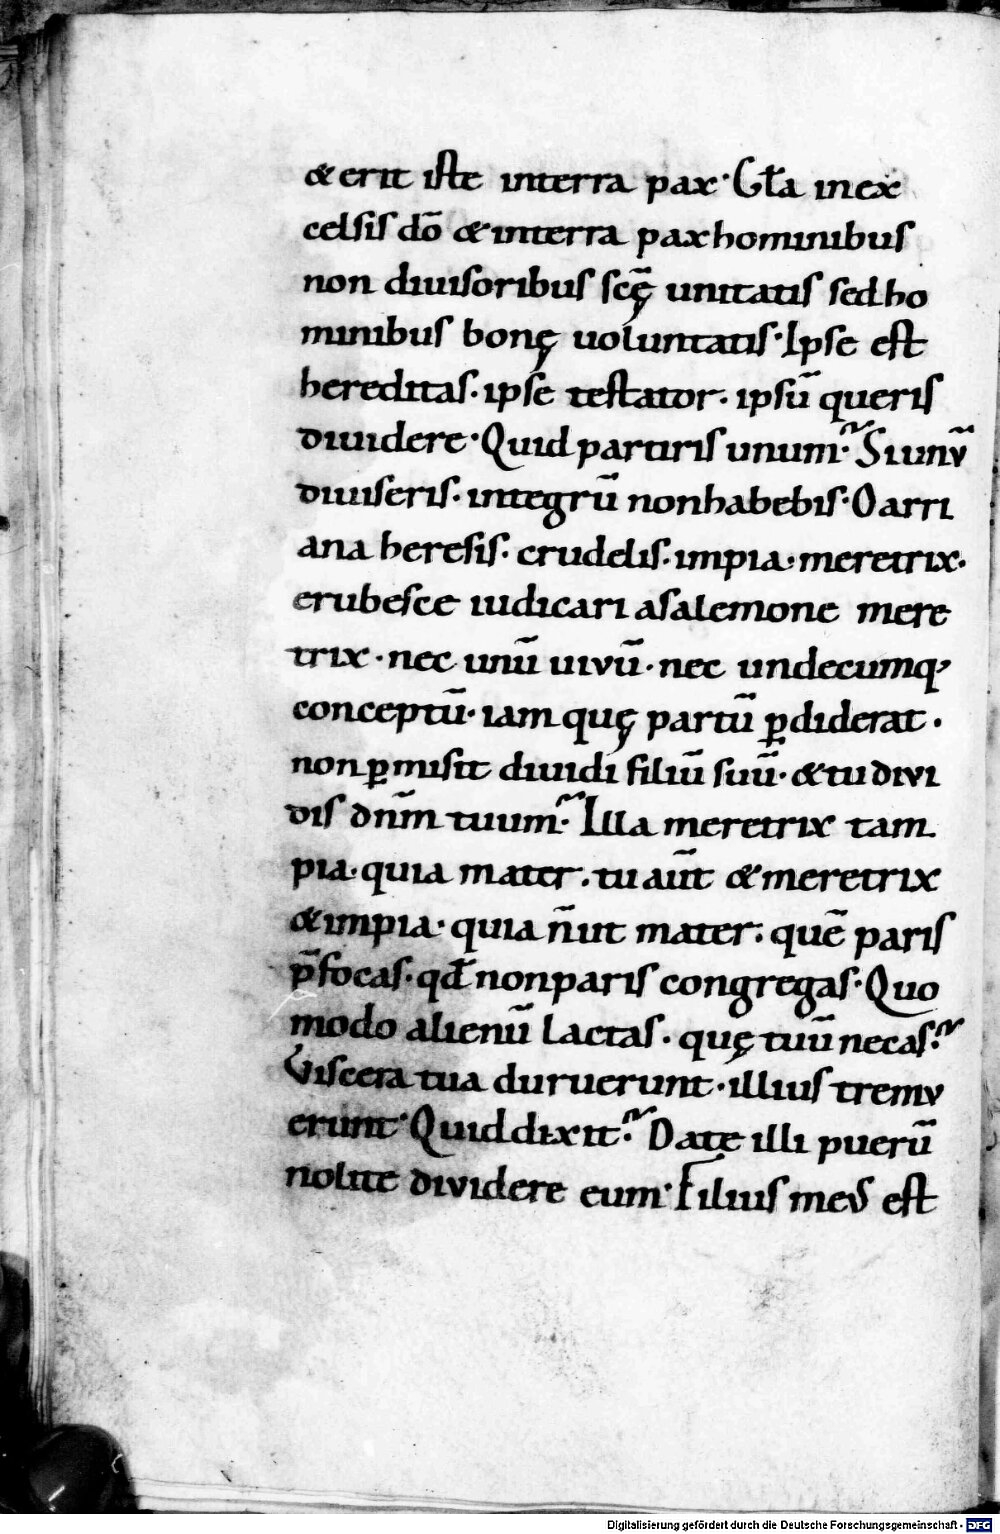 & erit iste interra pax· Gła inex
celsis dō & interra pax hominibus
non diuisoribus scę̄ unitatis sed ho
minibus bonę uoluntatis· Ipse est
hereditas· ipse testator· ipsū queris
diuidere· Quid partiris unum? Si unū
diuiseris· integrū non habebis· O arri
ana heresis· crudelis· impia· meretrix·
erubesce iudicari asalemone mere
trix· nec unū uivū· nec undecumq;
conceptū· iam quę partū ꝑdiderat·
non ꝑmisit diuidi filiū suū· & tu divi
dis dn̄m tuum? Illa meretrix tam
pia· quia mater· tu aūt & meretrix
& impia· quia n̄ ut mater· quē paris
p̄focas· qđ non paris congregas· Quo
modo alienū lactas· quę tuū necas?
Viscera tua duruerunt· illius tremu
erunt· Quid dixit? Date illi puerū
nolite dividere eum· Filius meus est
Digitalisierung gefördert durch die Deutsche Forschungsgemeinschaft - DFG